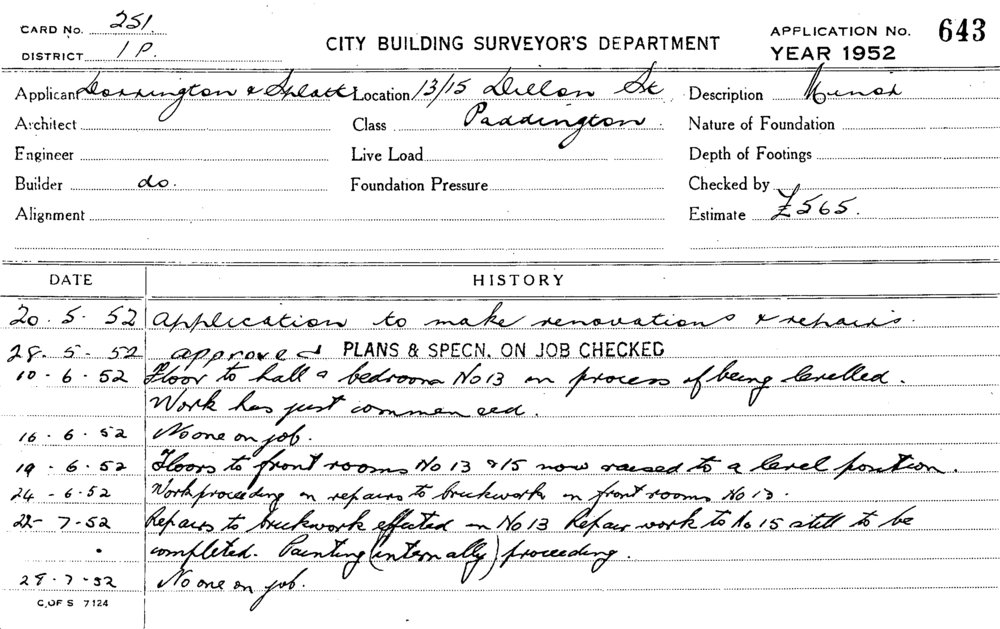 CARD No. 251
DISTRICT 1 P.
CITY BUILDING SURVEYOR'S DEPARTMENT
APPLICATION No. 643
YEAR 1952
Applicant Dorrington & Splatt Location 13/15 Dillon St Description Minor
Architect Class Paddington. Nature of Foundation
Engineer Live Load Depth of Footings
Builder do. Foundation Pressure Checked by
Alignment Estimate £565.
DATE HISTORY
20.5.52 Application to make renovations & repairs.
28.5.52 approved PLANS & SPECN. ON JOB CHECKED
10-6.52 Floor to hall & bedroom No 13 in process of being levelled.
Work has just commenced.
16.6.52 No one on job.
19.6.52 Floors to front rooms No 13 & 15 now raised to a level position.
24-6.52 Work proceeding on repairs to brickwork in front rooms No 13.
22-7-52 Repairs to brickwork effected in No 13 Repair work to No 15 still to be
completed. Painting (internally) proceeding.
29.7.52 No one on job.
C. OF S 7124